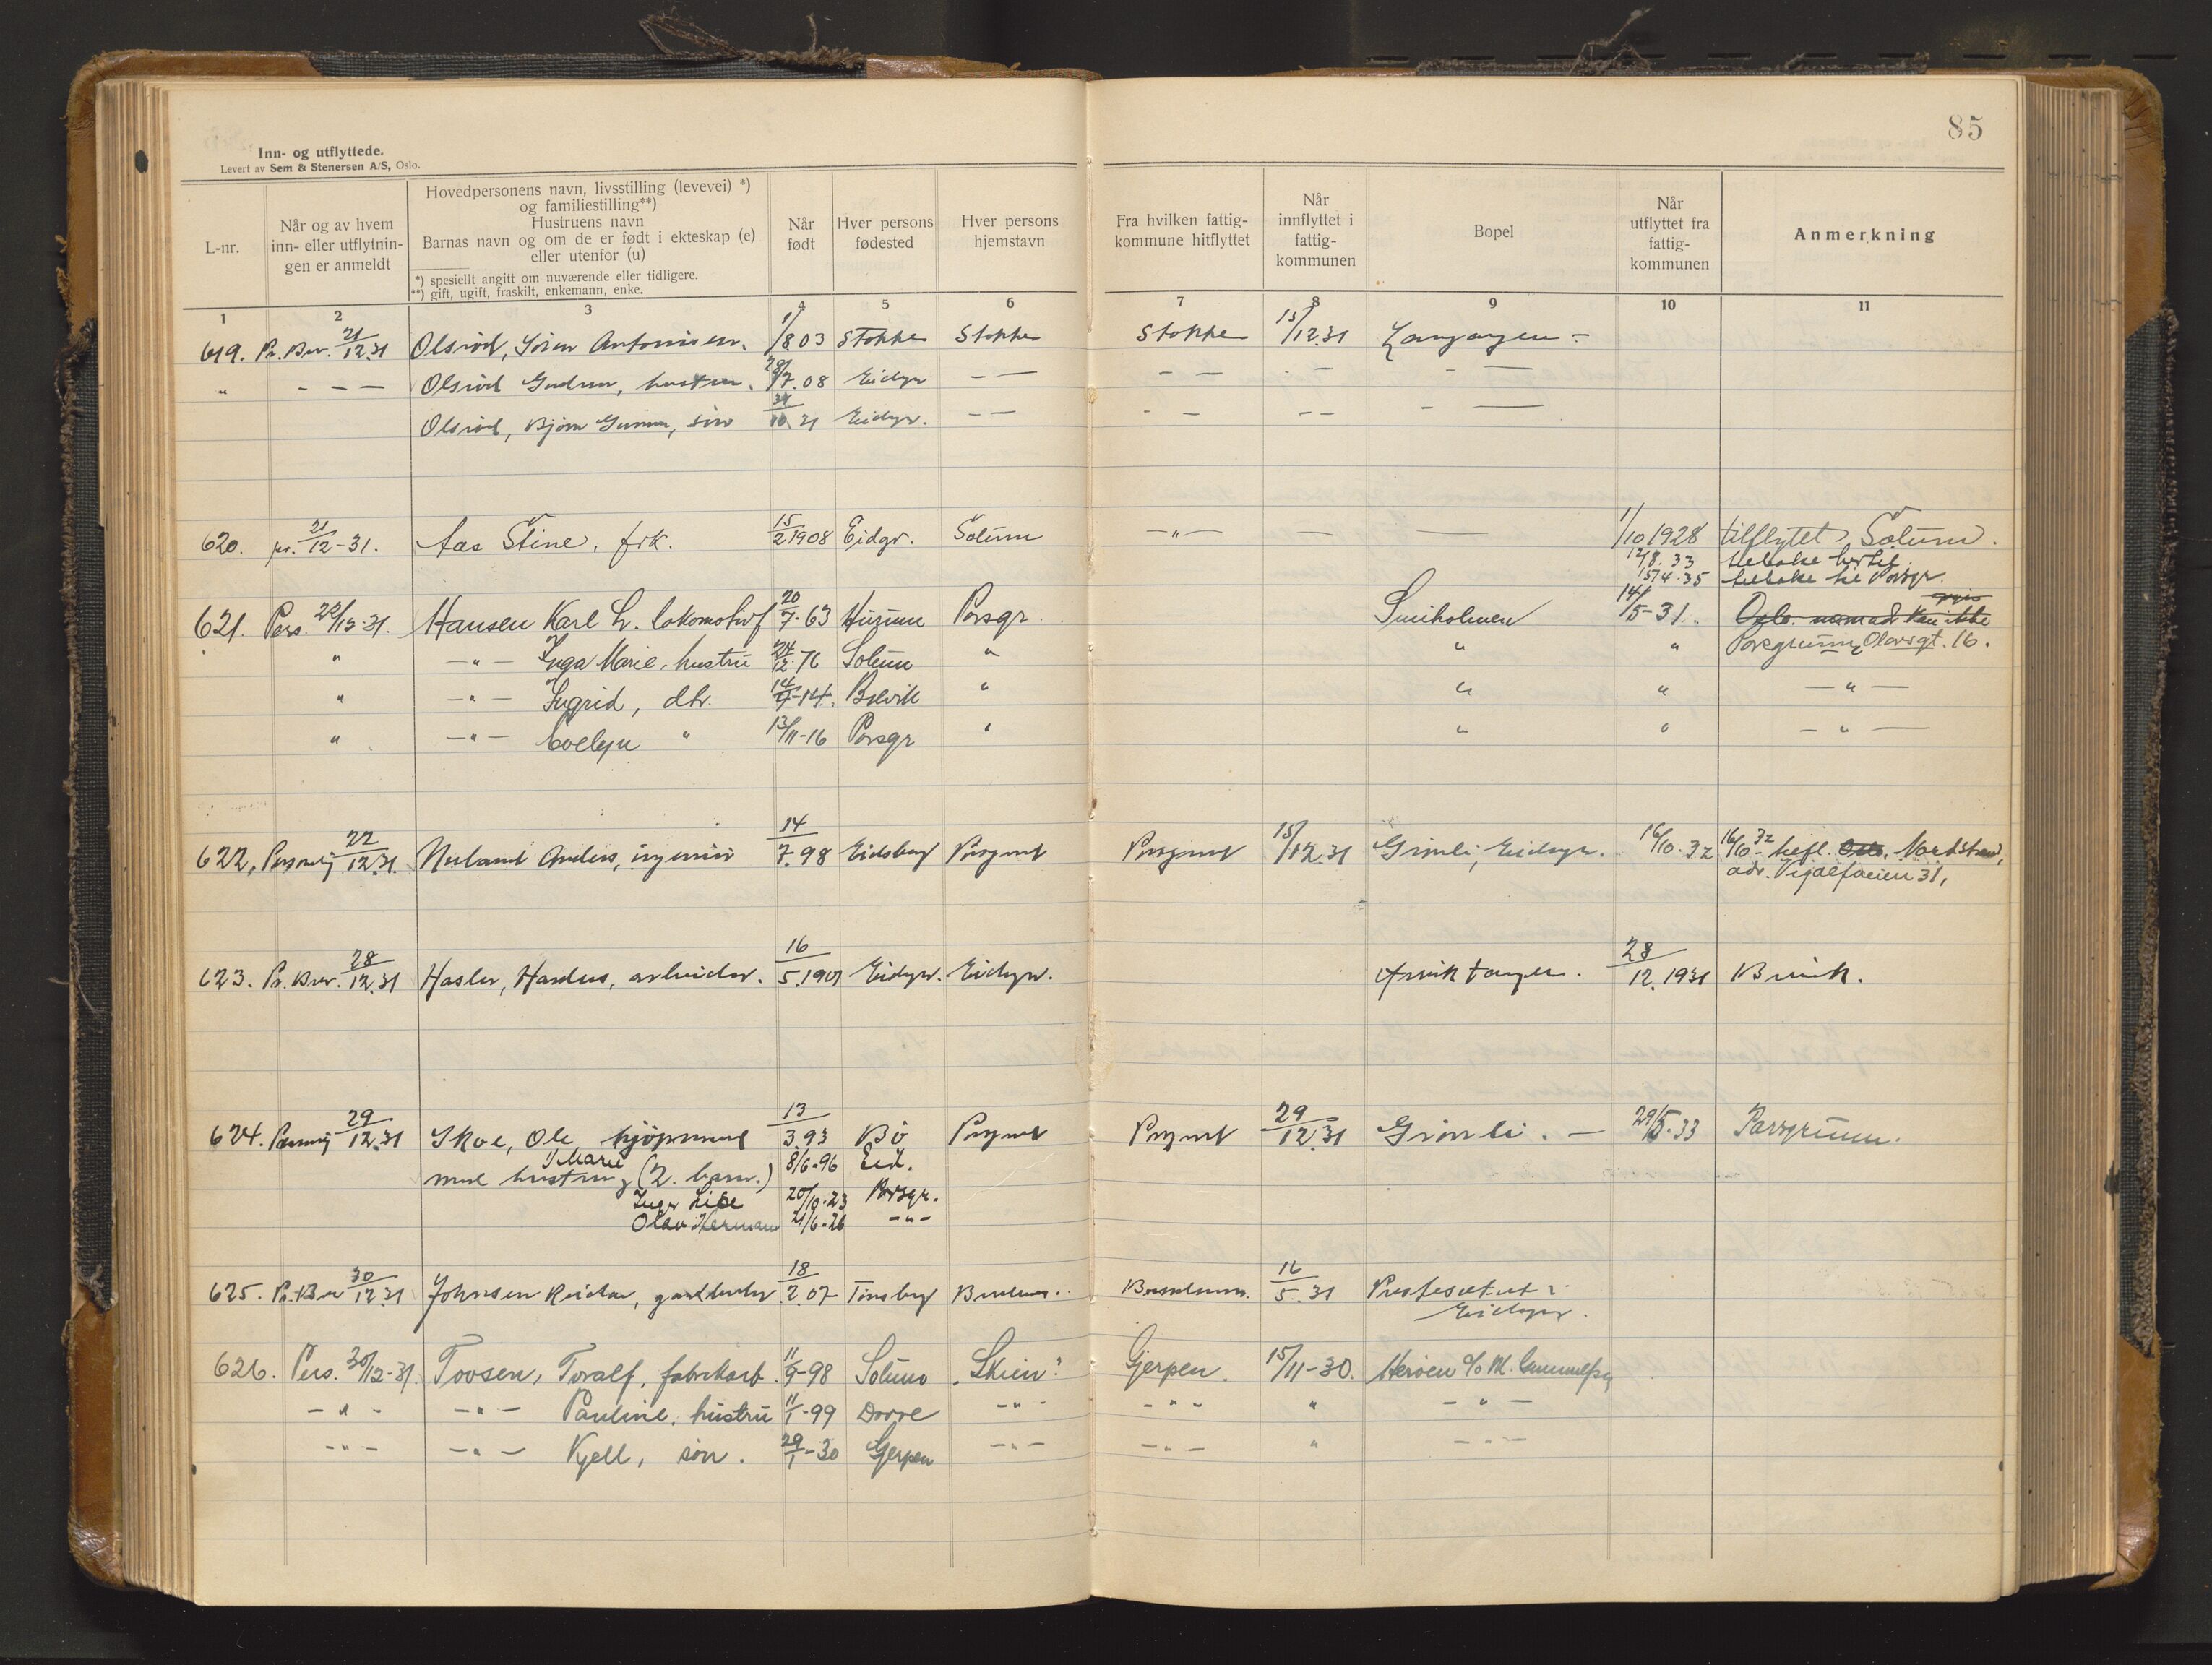 85
Inn- og utflyttede.
Levert av Sem & Stenersen A/S, Oslo.
L-nr.
Når og av hvem
inn- eller utflytnin-
gen er anmeldt
Hovedpersonens navn, livsstilling (levevei) *)
og familiestilling**)
Hustruens navn
Barnas navn og om de er født i ekteskap (e)
eller utenfor (u)
*) spesiellt angitt om nuværende eller tidligere.
**) gift, ugift, fraskilt, enkemann, enke.
Når
født
Hver persons
fødested
Hver persons
hjemstavn
Fra hvilken fattig-
kommune hitflyttet
Når
innflyttet i
fattig-
kommunen
Bopel
Når
utflyttet fra
fattig-
kommunen
Anmerkning
1 2 3 4 5 6 7 8 9 10 11
619. Pr. Brv. 21/12.31 Olsrød, Søren Antonisen. 1/8 03 Stokke Stokke Stokke 15/12.31 Langangen -
" - - - Olsrød Gudrun, hustru. 28/7.08 Eidgr - — - — - — - —
Olsrød, Bjørn Gunnar, søn 31/10.31 Eidgr. - — - — - - - —
620. pr. 21/12-31. Aas Stine, frk. 15/2 1908 Eidgr. Solum -"- — — 1/10 1928 tilflytet Solum.
12/8.33 tilbake hertil
15/4.35 tilbake til Porsgr.
621. Pers. 22/12-31. Hansen Karl L. lokomotivf 20/7-63 Hurum Porsgr. 14/5-31. Oslo
" -"- Inga Marie, hustru 24/12-76 Solum " " " Porsgrunn, Olavsgt. 16.
" -"- Ingrid, dtr. 14/9-14. Brevik " " " -"-
" -"- Evelyn " 13/11-16 Porsgr " " " -"-
622. Personlig 22/12.31. Nuland Anders, ingeniør 14/7.98 Eidsberg Porsgrunn Porsgrunn 15/12.31 Grimli, Eidgr. 16/10.32 16/10-32 tilfl. Oslo, Nordstrand,
adr. 31,
623. Pr. Brv. 28/12.31 Hasler, Hardus, arbeider. 16/5.1901 Eidgr. Eidgr. 28/12.1931 Brevik.
624. Personlig 29/12.31 Skoe, Ole, kjøpmand 13/3.93 Bø Porsgrunn Porsgrunn 29/12.31 Grimli. - 29/5-33 Porsgrunn.
med hustru Marie (2. barn.) 8/6-96 Eid.
Inger Lise 20/10-23 Porsgr.
Olav Herman 21/6-26 -"-
625. Pr. Brv 30/12.31 Johnsen Reidar, 18/2.07 Tønsberg 16/5.31 Prestesetet i
Eidgr.
626. Pers. 30/12-31. Tovsen, Toralf, fabrikarb. 11/9-98 Solum Skien? Gjerpen. 15/11-30. Herøen c/o M. Gunnulfsen
-"- -"- Pauline, hustru 11/1-99 Dovre -"- -"- " -"-
-"- -"- Kjell, søn. 29/1-30 Gjerpen -"- -"- " -"-